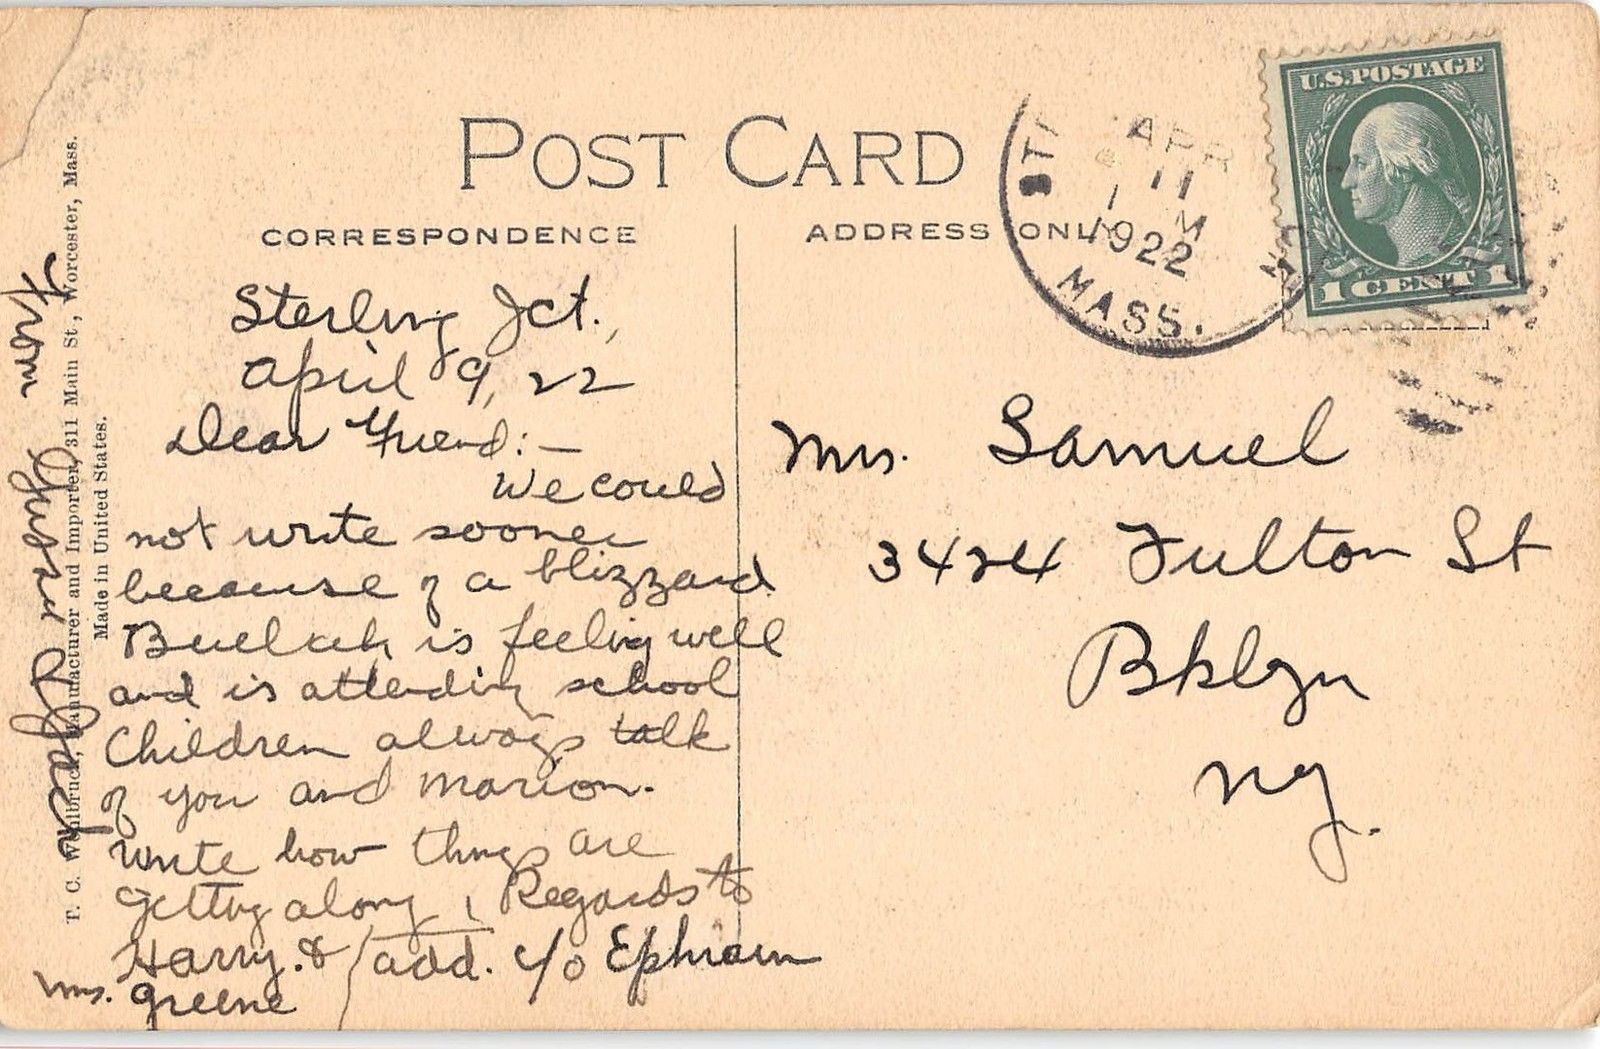 POST CARD
CORRESPONDENCE
ADDRESS ONLY
U.S. POSTAGE
1 CENT 1
APR
11
M
1922
MASS.
Sterling Jct.,
April 9, 22
Dear Friend:—
We could
not write sooner
because of a blizzard
Buelah is feeling well
and is attending school
Children always talk
of you and Marion.
Write how things are
getting along, Regards to
Harry. & add. c/o Ephraim
Mrs. Greene
From
Mrs. Samuel
3424 Fulton St
Bklyn
NY.
T. C. Wohlbruck, Manufacturer and Importer, 311 Main St., Worcester, Mass.
Made in United States.